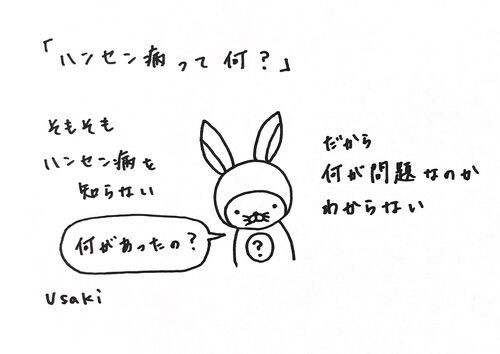 「ハンセン病って何？」
そもそも
ハンセン病を
知らない
だから
何が問題なのか
わからない
何があったの？
?
Usaki